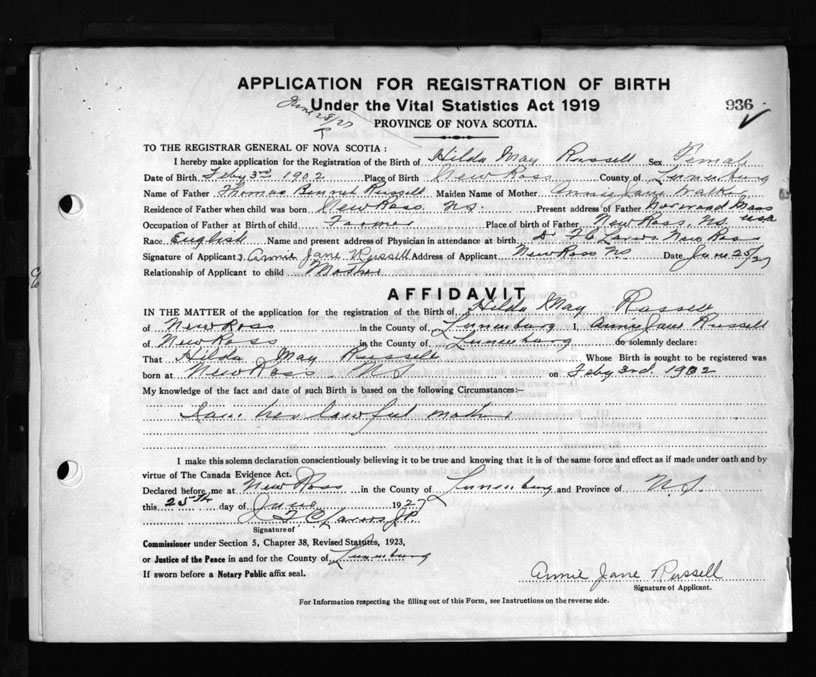 APPLICATION FOR REGISTRATION OF BIRTH
June 28/27
Under the Vital Statistics Act 1919
936
PROVINCE OF NOVA SCOTIA.
TO THE REGISTRAR GENERAL OF NOVA SCOTIA :
I hereby make application for the Registration of the Birth of Hilda May Russell Sex Female
Date of Birth Feby 3rd 1902 Place of Birth New Ross County of Lunenburg
Name of Father Thomas Bennet Russell Maiden Name of Mother Annie Jane
Residence of Father when child was born New Ross NS. Present address of Father Norwood Mass
Occupation of Father at Birth of child Farmer Place of birth of Father New Ross, NS. USA
Race English Name and present address of Physician in attendance at birth Dr New Ross
Signature of Applicant Annie Jane Russell Address of Applicant New Ross NS Date June 25/27
Relationship of Applicant to child Mother
AFFIDAVIT
IN THE MATTER of the application for the registration of the Birth of Hilda May Russell
of New Ross in the County of Lunenburg I, Annie Jane Russell
of New Ross in the County of Lunenburg do solemnly declare:
That Hilda May Russell Whose Birth is sought to be registered was
born at New Ross NS on Feby 3rd. 1902
My knowledge of the fact and date of such Birth is based on the following Circumstances:—
I am her lawful mother
I make this solemn declaration conscientiously believing it to be true and knowing that it is of the same force and effect as if made under oath and by
virtue of The Canada Evidence Act.
Declared before me at New Ross in the County of Lunenburg and Province of N.S.
this 25th day of June 1927
J.P.
Signature of
Commissioner under Section 5, Chapter 38, Revised Statutes, 1923,
or Justice of the Peace in and for the County of Lunenburg
If sworn before a Notary Public affix seal.
Annie Jane Russell
Signature of Applicant.
For Information respecting the filling out of this Form, see Instructions on the reverse side.